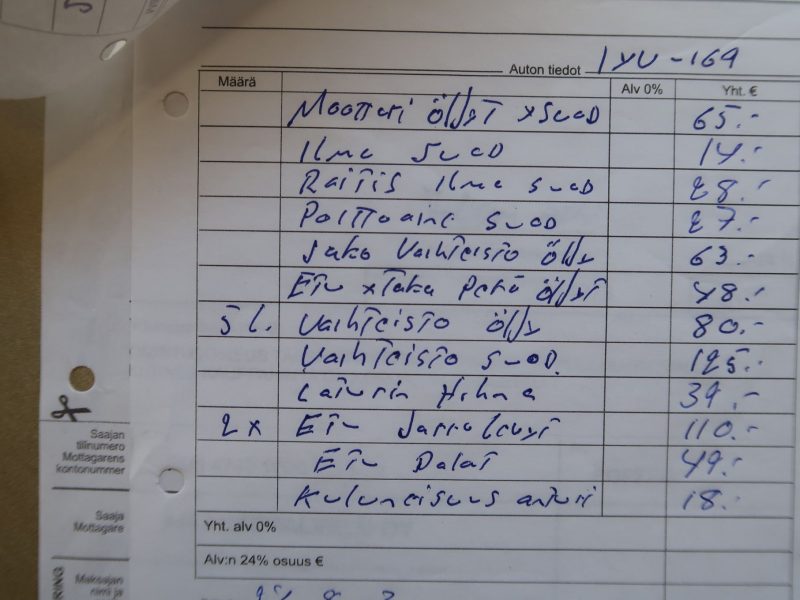 Auton tiedot IYU-169
Määrä Alv 0% Yht. €
Mootteri öljyt x Suod 65.-
Ilma Suod 14.-
Raitis Ilma Suod 28.-
Polttoaine Suod 27.-
Jako Vaihteisto öljy 63.-
Etu x Taka Perä öljyt 48.-
5 l. Vaihteisto öljy 80.-
Vaihteisto suod. 125.-
Laturin Hihna 39.-
2x Etu Jarrulevyt 110.-
Etu Palat 49.-
Kuluneisuus anturi 18.-
Yht. alv 0%
Alv:n 24% osuus €
Saajan
tilinumero
Mottagarens
kontonummer
Saaja
Mottagare
Maksajan
nimi ja